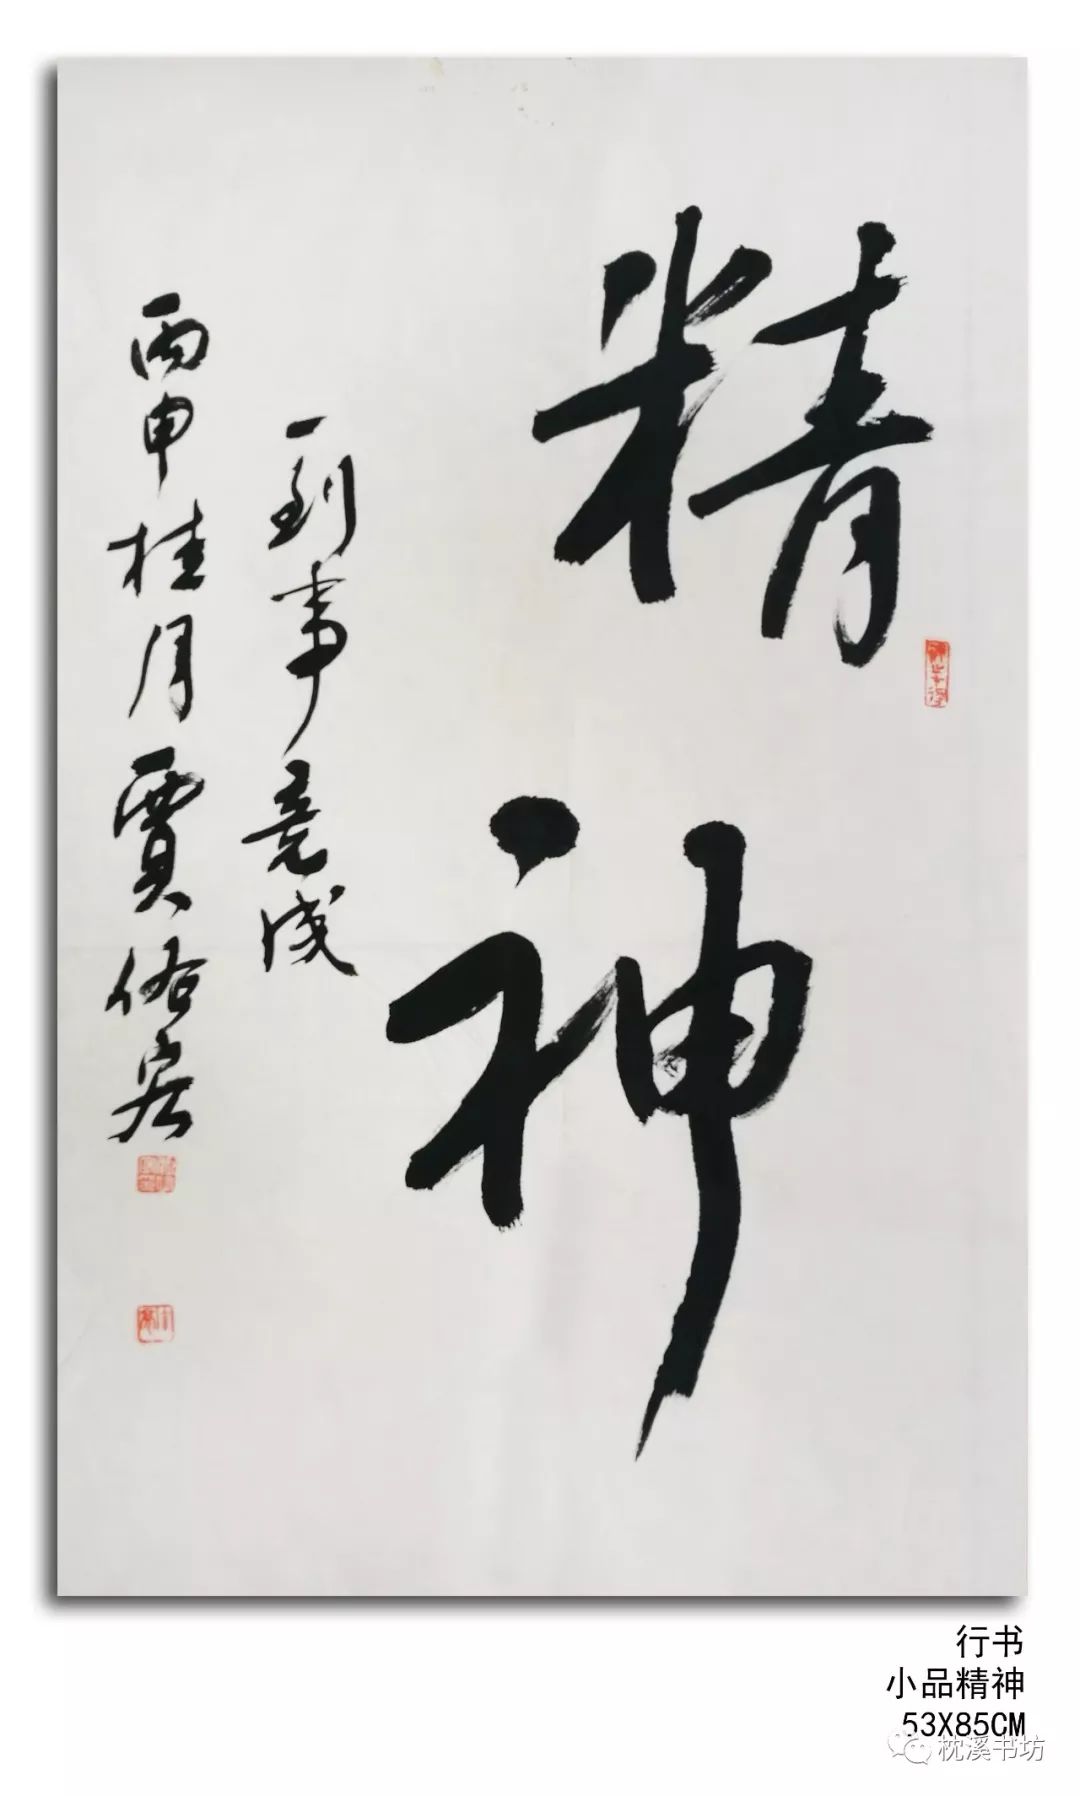 精神
一到事竟成
丙申桂月賈
行书
小品精神
53X85CM
枕溪书坊